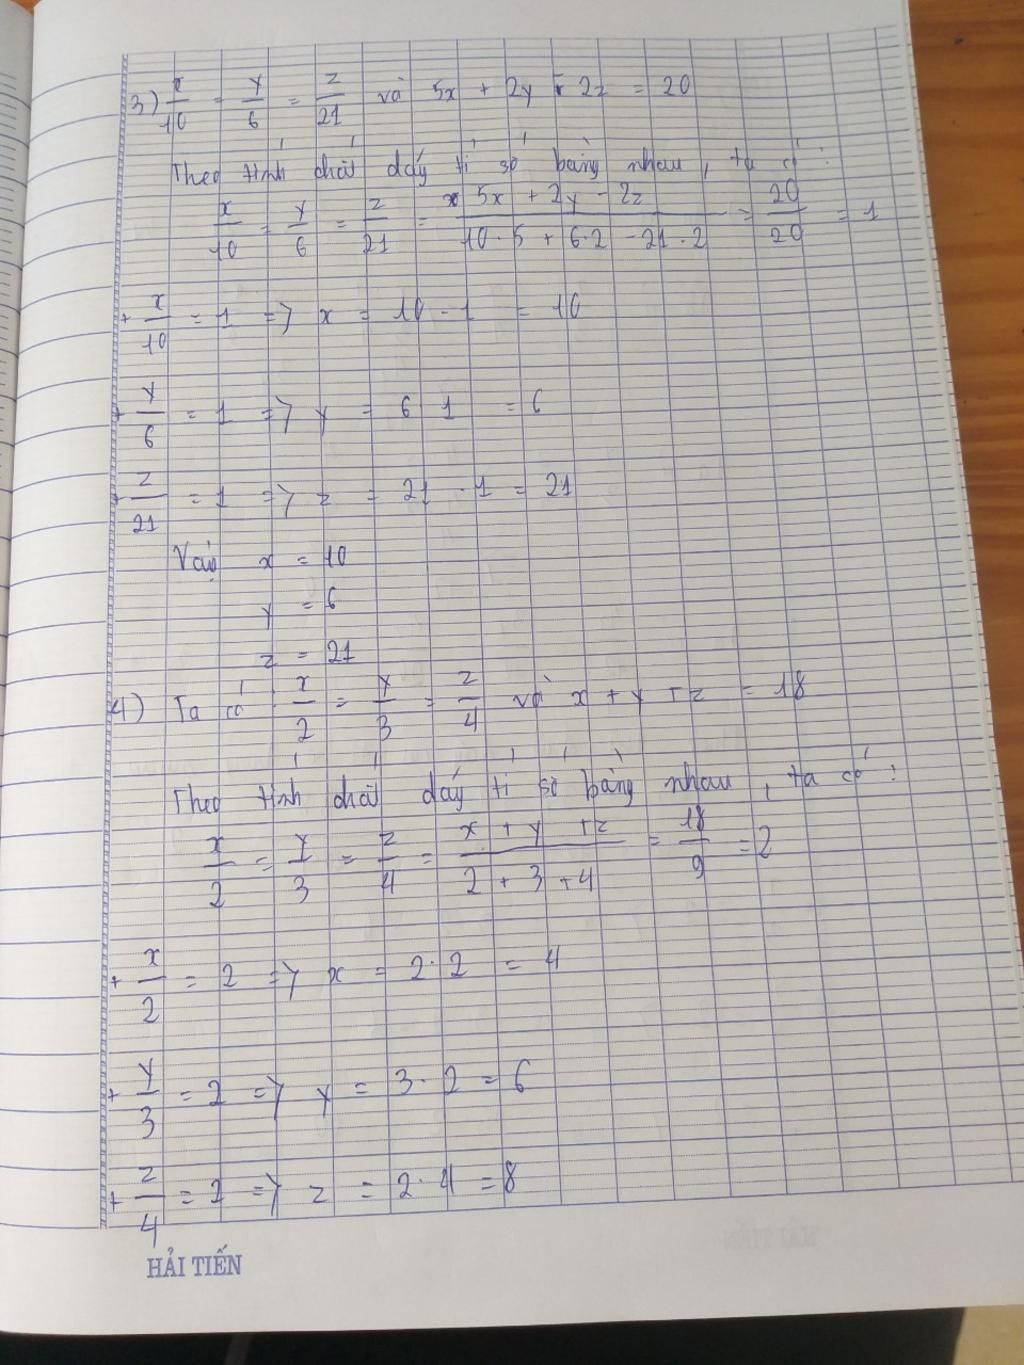 3) x/10 = y/6 = z/21 và 5x + 2y - 2z = 20
Theo tính chất dãy tỉ số bằng nhau, ta có:
x/10 = y/6 = z/21 = 5x + 2y - 2z/10·5 + 6·2 - 21·2 = 20/20 = 1
+ x/10 = 1 => x = 10·1 = 10
+ y/6 = 1 => y = 6 1 = 6
+ z/21 = 1 => z = 21·1 = 21
Vậy x = 10
y = 6
z = 21
4) Ta có x/2 = y/3 = z/4 và x + y + z = 18
Theo tính chất dãy tỉ số bằng nhau, ta có:
x/2 = y/3 = z/4 = x + y + z/2 + 3 + 4 = 18/9 = 2
+ x/2 = 2 => x = 2·2 = 4
+ y/3 = 2 => y = 3·2 = 6
+ z/4 = 2 => z = 2·4 = 8
HẢI TIẾN